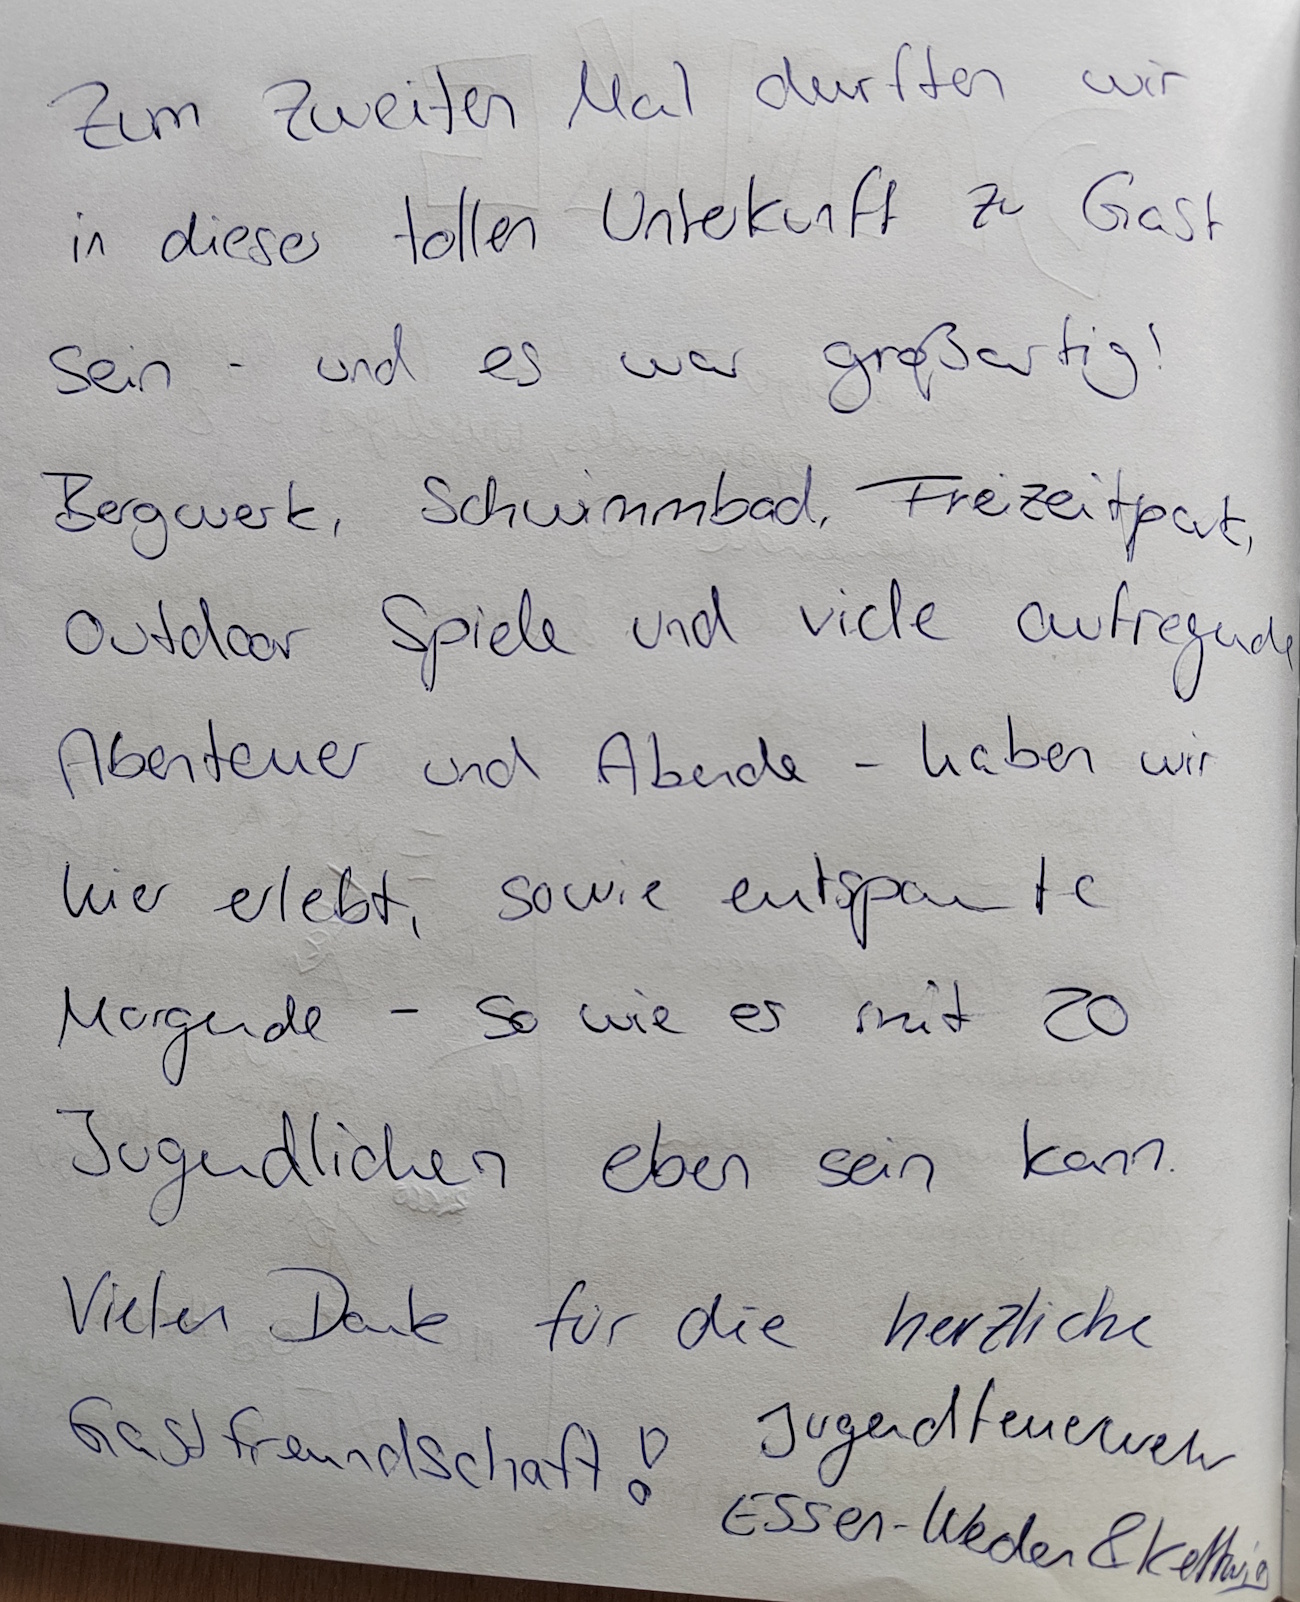 Zum zweiten Mal durften wir
in dieser tollen Unterkunft zu Gast
sein - und es war großartig!
Bergwerk, Schwimmbad, Freizeitpark,
Outdoor Spiele und viele aufregende
Abenteuer und Abende - haben wir
hier erlebt, sowie entspannte
Morgende - so wie es mit 20
Jugendlichen eben sein kann.
Vielen Dank für die herzliche
Gastfreundschaft! Jugendfeuerwehr
Essen-Werden & Kettwig